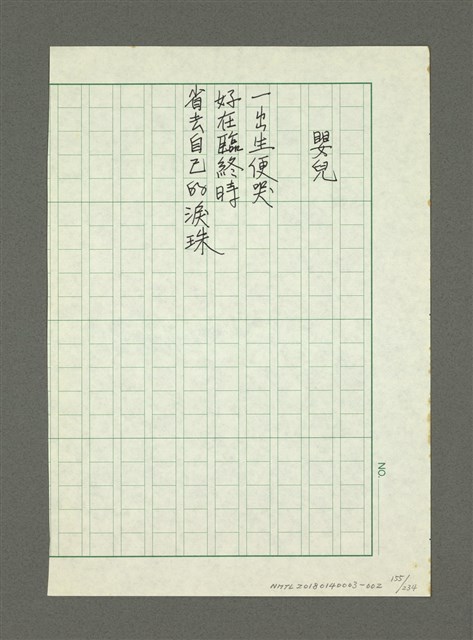 嬰兒
一出生便哭
好在臨終時
省去自己的淚珠
NO.
NMTL20180140003-002
155/234